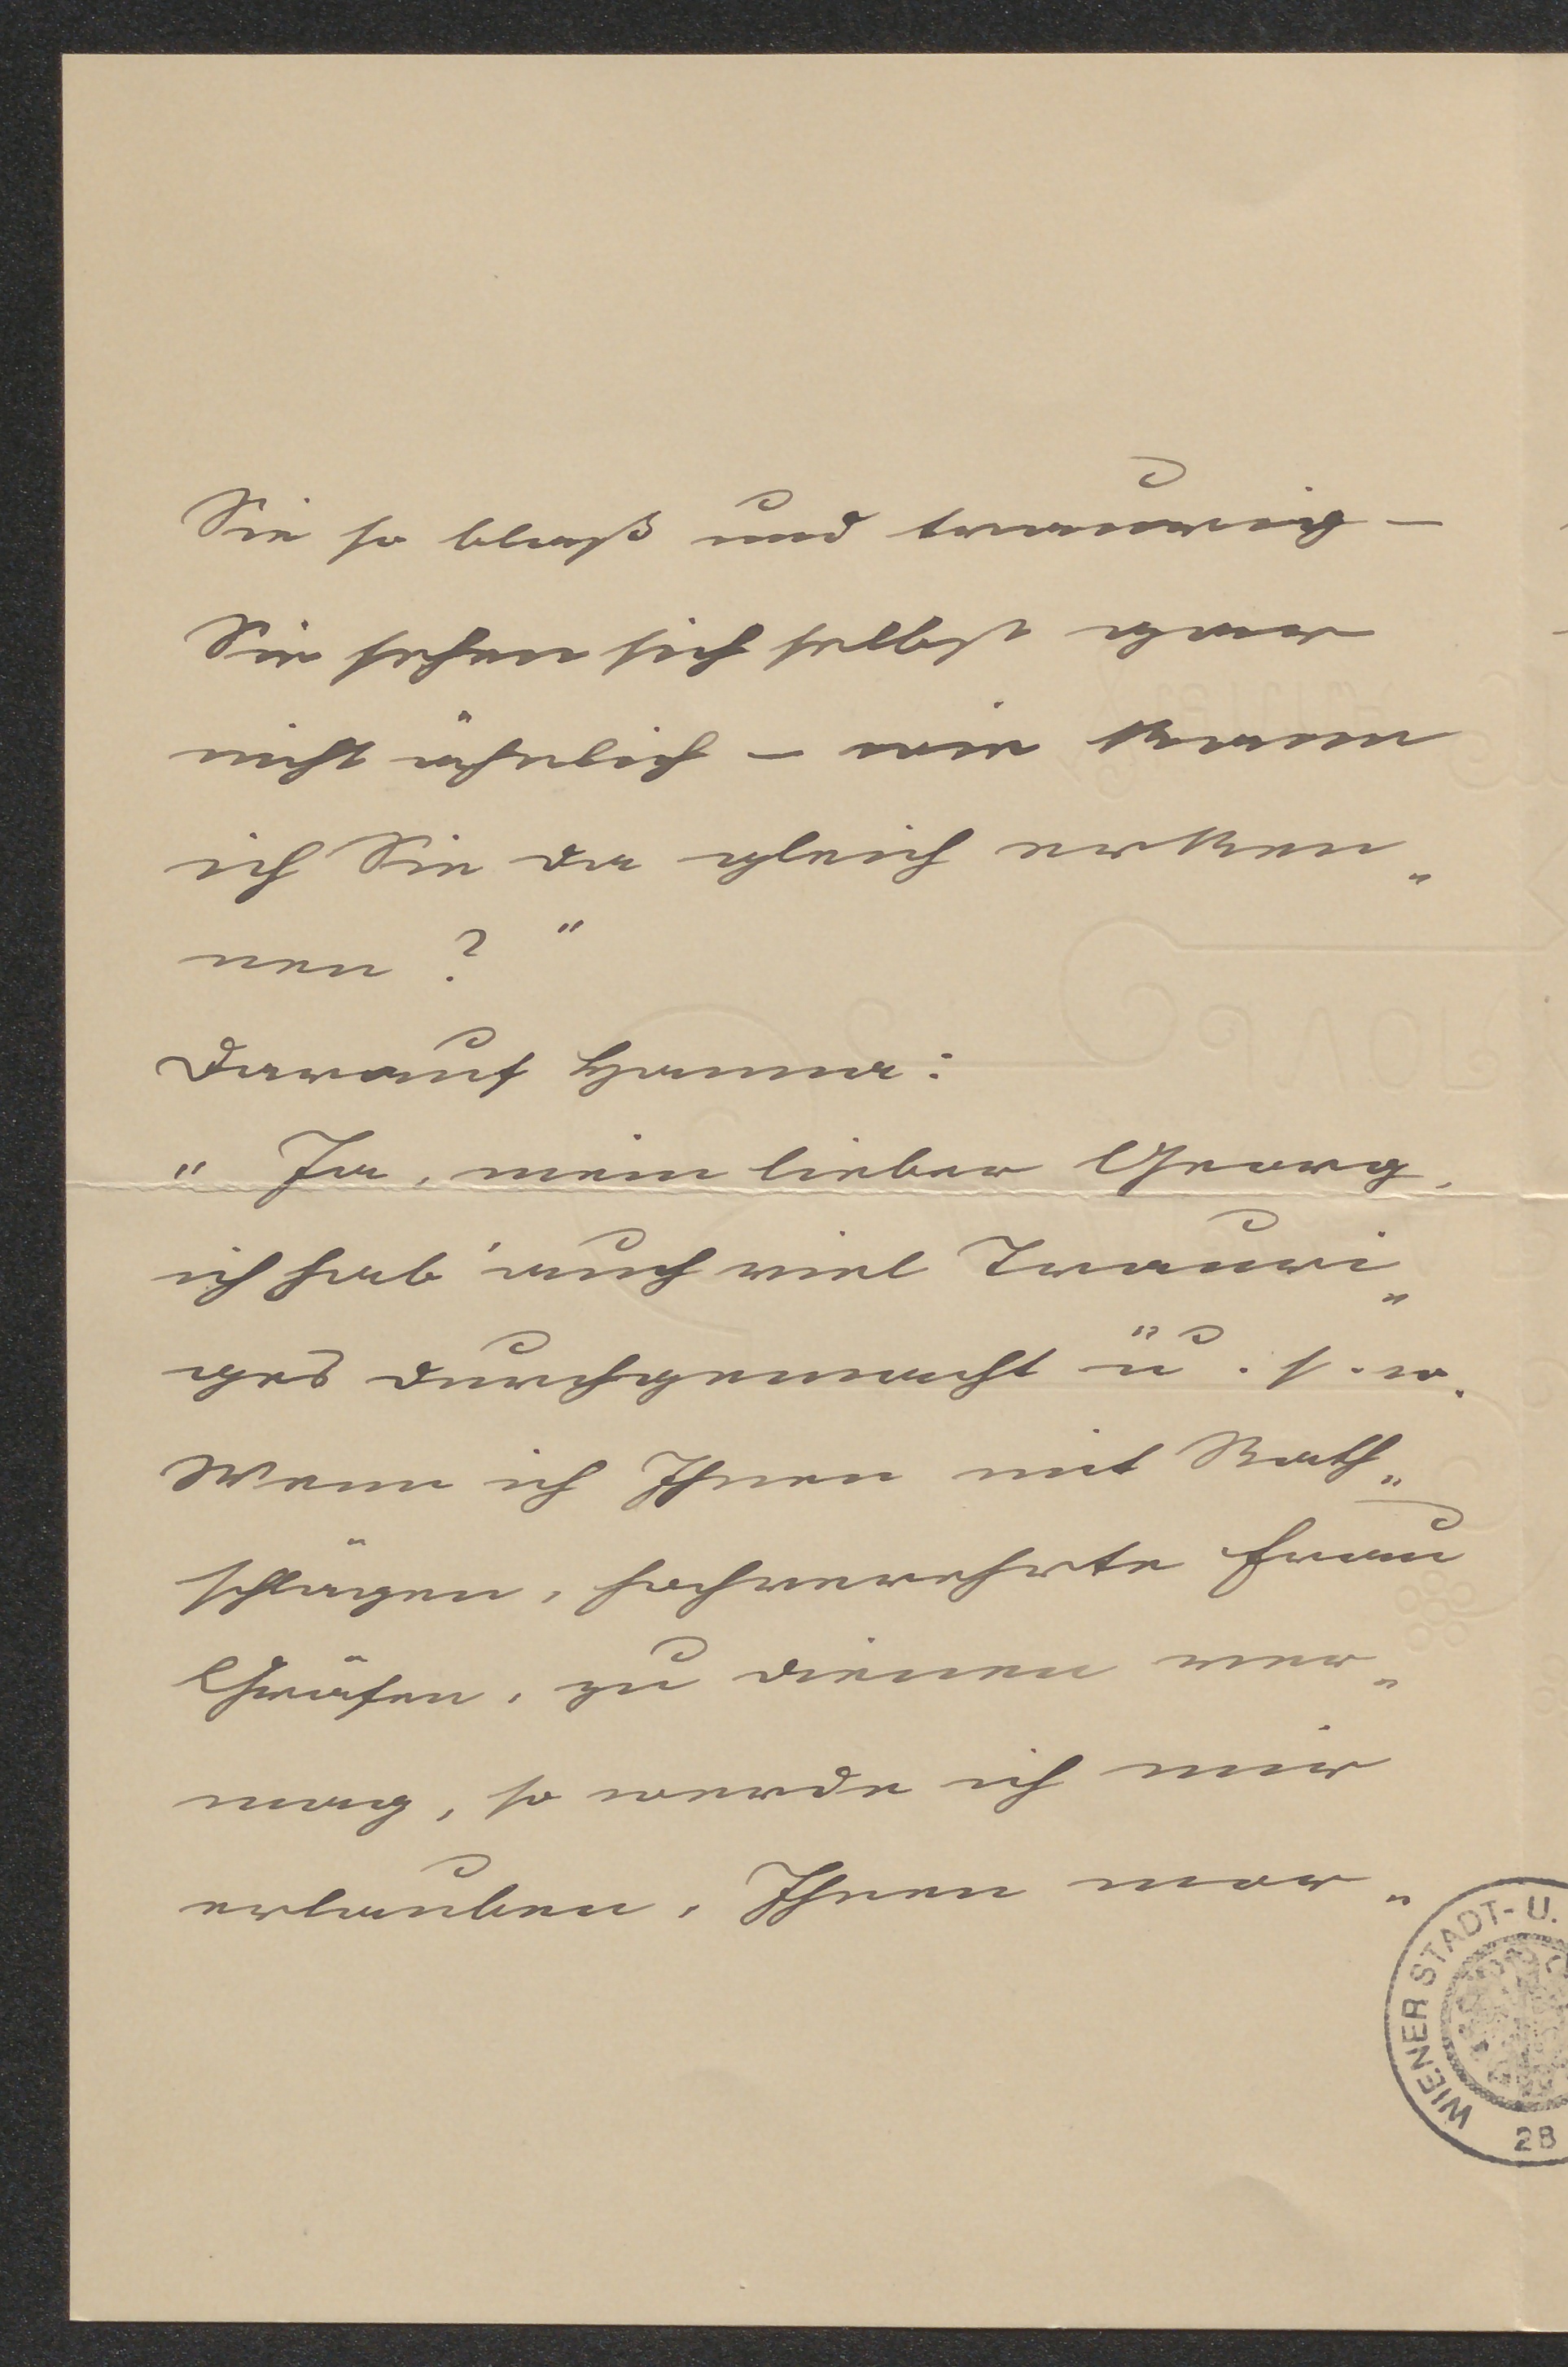 Sie so blaß und traurig –
Sie sehen sich selbst gar
nicht ähnlich – wie kann
ich Sie da gleich erken„
nen? "
Darauf Hanna:
" Ja, mein lieber Georg,
ich hab' auch viel Trauri„
ges durchgemacht " u. s. w.
Wenn ich Ihnen mit Rath„
schlägen, hochverehrte Frau
Gräfin, zu dienen ver„
mag, so werde ich mir
erlauben, Ihnen mor„
WIENER STADT- U.
28